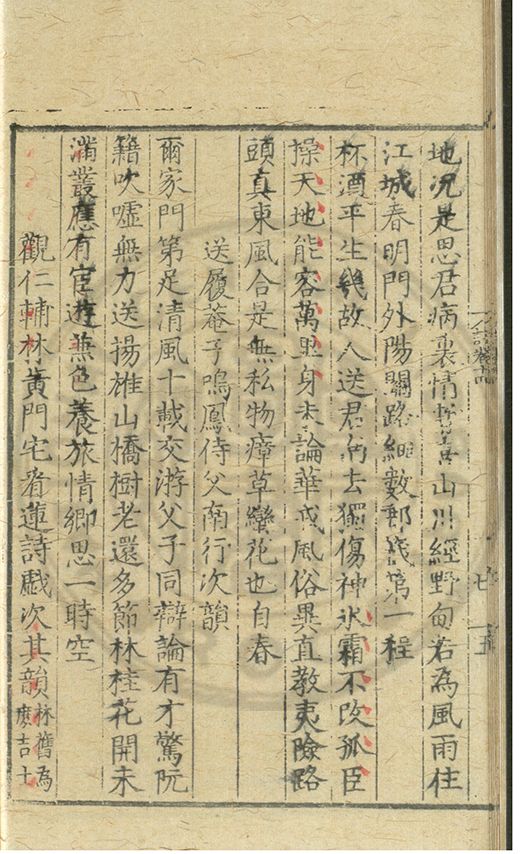 地况是思君病裏情山川經野甸若為風雨住
江城春明門外陽關路細數郵籤第一程
杯酒平生幾故人送君南去獨傷神氷霜不改孤臣
操天地能容萬里身未論華戎風俗異直教夷險路
頭真東風合是無私物瘴草蠻花也自春
送履菴子鳴鳳侍父南行次韻
爾家門第足清風十載交游父子同辯論有才驚阮
籍吹噓無力送揚雄山橋樹老還多節林桂花開未
滿叢應有宦遊兼色養旅情鄉思一時空
觀仁輔林黃門宅看蓮詩戲次其韻林舊為庶吉士